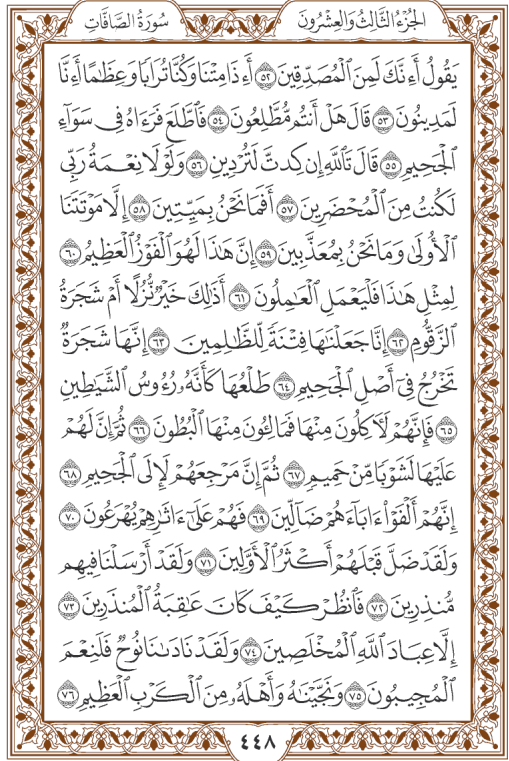 الجُزْءُ الثَّالِثُ وَالعِشْرُونَ
سُورَةُ الصَّافَّاتِ
يَقُولُ أَءِنَّكَ لَمِنَ الْمُصَدِّقِينَ ٥٢ أَءِذَا مِتْنَا وَكُنَّا تُرَابًا وَعِظَٰمًا أَءِنَّا
لَمَدِينُونَ ٥٣ قَالَ هَلْ أَنتُم مُّطَّلِعُونَ ٥٤ فَٱطَّلَعَ فَرَءَاهُ فِى سَوَآءِ
ٱلْجَحِيمِ ٥٥ قَالَ تَٱللَّهِ إِن كِدتَّ لَتُرْدِينِ ٥٦ وَلَوْلَا نِعْمَةُ رَبِّى
لَكُنتُ مِنَ ٱلْمُحْضَرِينَ ٥٧ أَفَمَا نَحْنُ بِمَيِّتِينَ ٥٨ إِلَّا مَوْتَتَنَا
ٱلْأُولَىٰ وَمَا نَحْنُ بِمُعَذَّبِينَ ٥٩ إِنَّ هَٰذَا لَهُوَ ٱلْفَوْزُ ٱلْعَظِيمُ ٦٠
لِمِثْلِ هَٰذَا فَلْيَعْمَلِ ٱلْعَٰمِلُونَ ٦١ أَذَٰلِكَ خَيْرٌ نُّزُلًا أَمْ شَجَرَةُ
ٱلزَّقُّومِ ٦٢ إِنَّا جَعَلْنَٰهَا فِتْنَةً لِّلظَّٰلِمِينَ ٦٣ إِنَّهَا شَجَرَةٌ
تَخْرُجُ فِىٓ أَصْلِ ٱلْجَحِيمِ ٦٤ طَلْعُهَا كَأَنَّهُۥ رُءُوسُ ٱلشَّيَٰطِينِ
٦٥ فَإِنَّهُمْ لَءَاكِلُونَ مِنْهَا فَمَالِـُٔونَ مِنْهَا ٱلْبُطُونَ ٦٦ ثُمَّ إِنَّ لَهُمْ
عَلَيْهَا لَشَوْبًا مِّنْ حَمِيمٍ ٦٧ ثُمَّ إِنَّ مَرْجِعَهُمْ لَإِلَى ٱلْجَحِيمِ ٦٨
إِنَّهُمْ أَلْفَوْا۟ ءَابَآءَهُمْ ضَآلِّينَ ٦٩ فَهُمْ عَلَىٰٓ ءَاثَٰرِهِمْ يُهْرَعُونَ ٧٠
وَلَقَدْ ضَلَّ قَبْلَهُمْ أَكْثَرُ ٱلْأَوَّلِينَ ٧١ وَلَقَدْ أَرْسَلْنَا فِيهِم
مُّنذِرِينَ ٧٢ فَٱنظُرْ كَيْفَ كَانَ عَٰقِبَةُ ٱلْمُنذَرِينَ ٧٣
إِلَّا عِبَادَ ٱللَّهِ ٱلْمُخْلَصِينَ ٧٤ وَلَقَدْ نَادَىٰنَا نُوحٌ فَلَنِعْمَ
ٱلْمُجِيبُونَ ٧٥ وَنَجَّيْنَٰهُ وَأَهْلَهُۥ مِنَ ٱلْكَرْبِ ٱلْعَظِيمِ ٧٦
٤٤٨